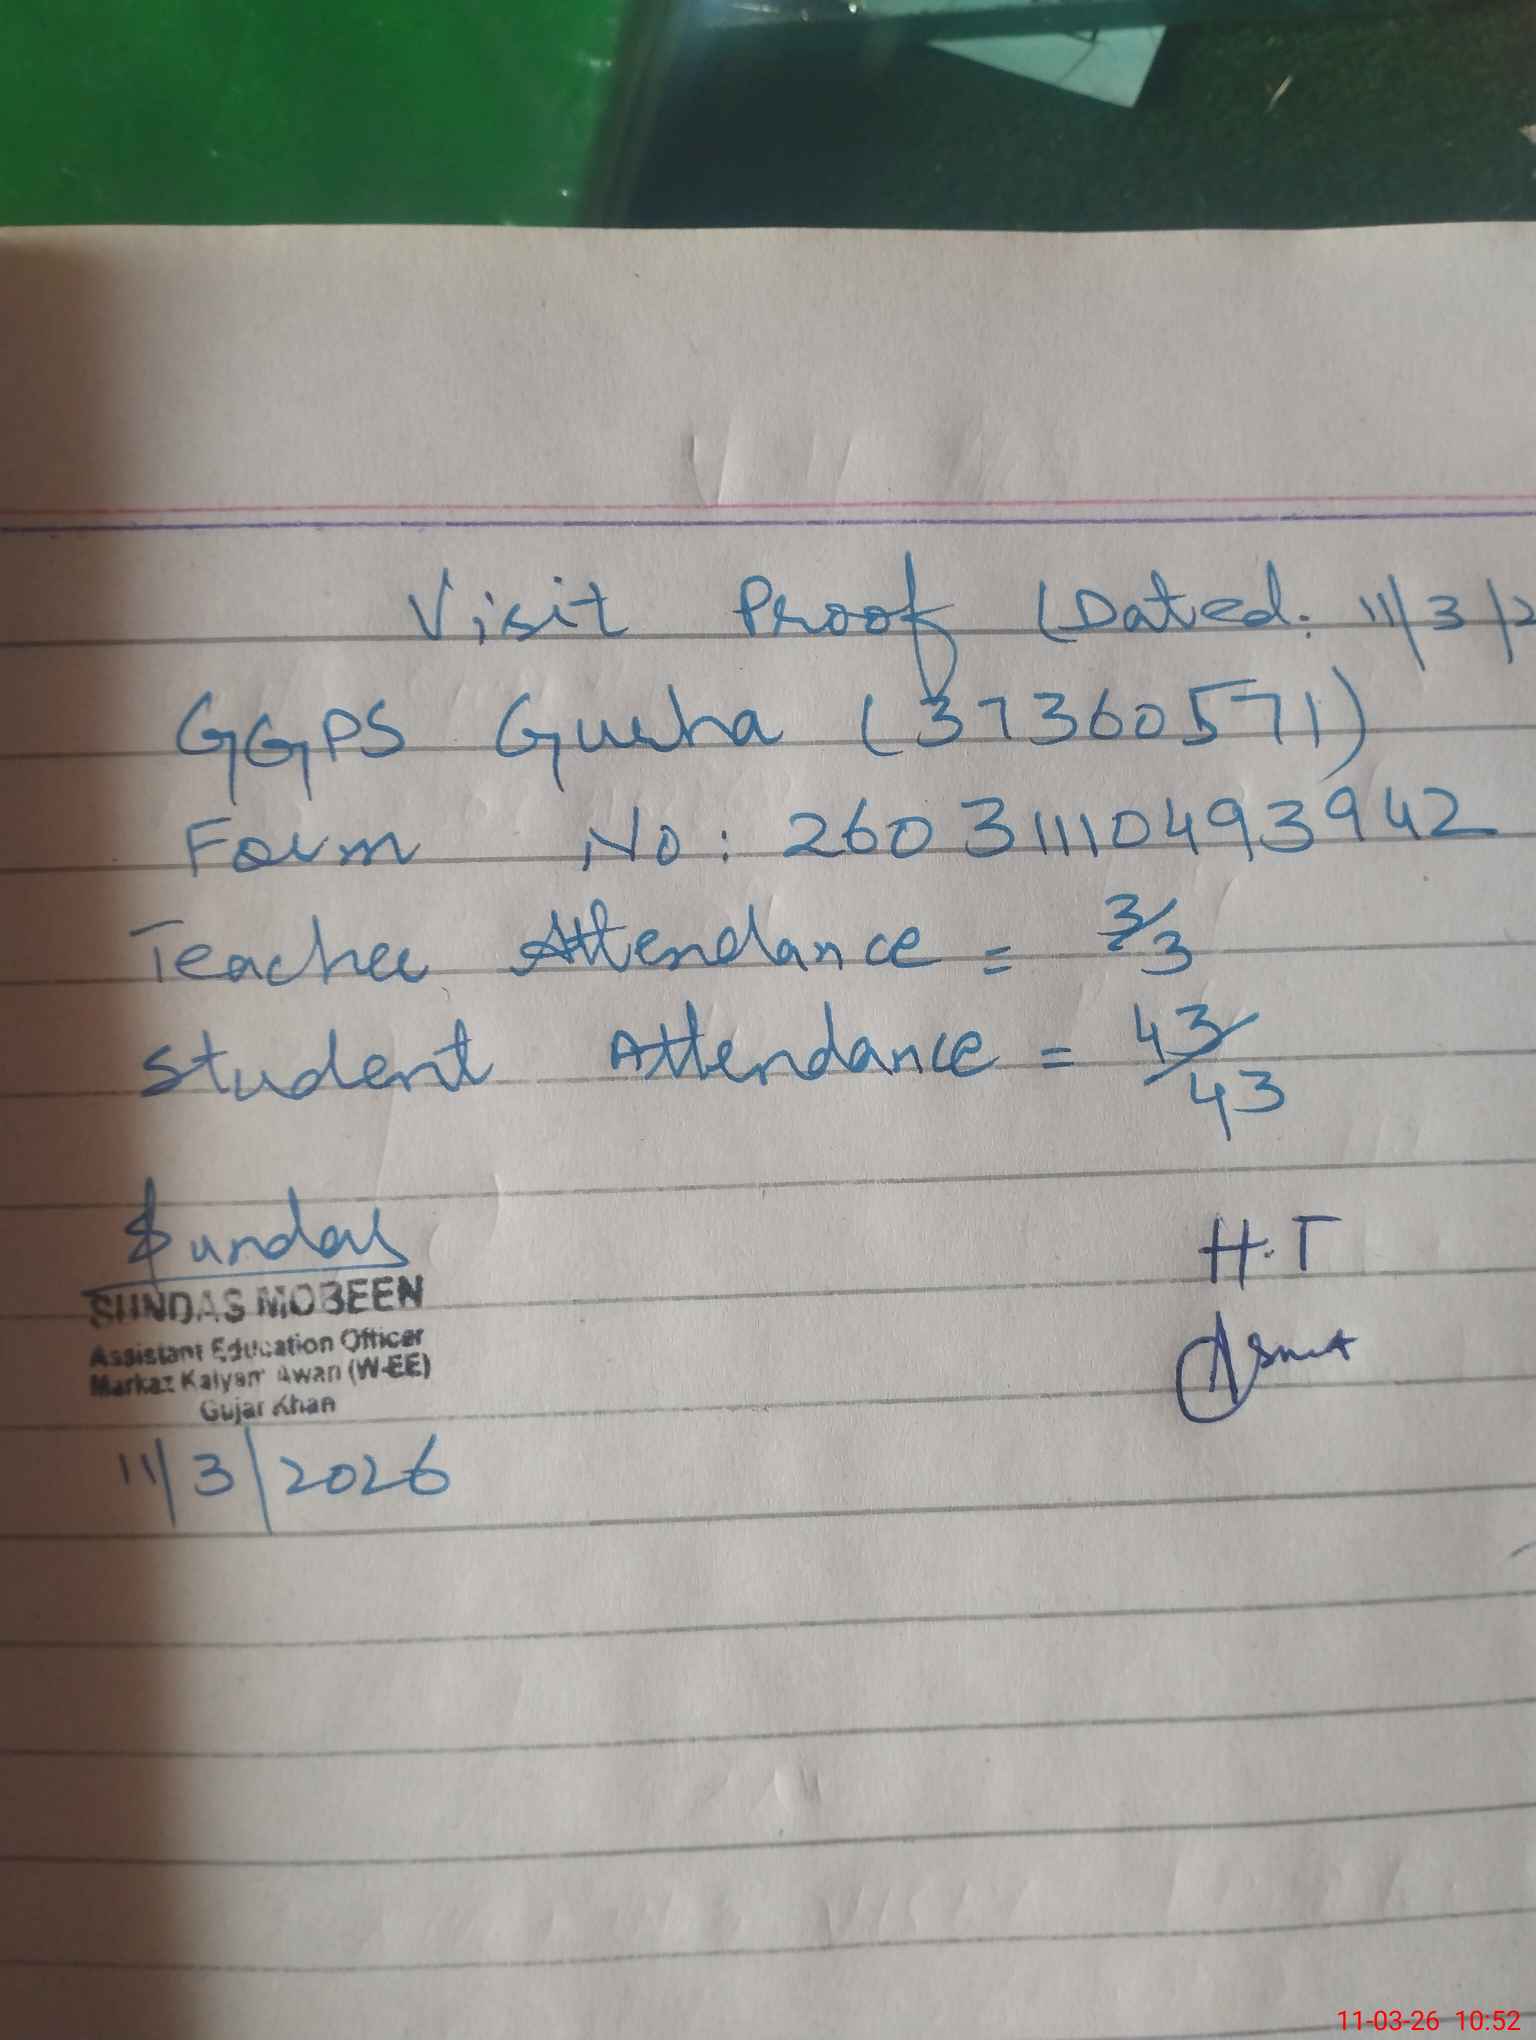 Visit Proof (Dated: 11/3/2
GGPS Gurha (37360571)
Form No: 26031110493942
Teacher Attendance = 3/3
Student Attendance = 43/43
Sundas
SUNDAS MOBEEN
Assistant Education Officer
Markaz Kalyam Awan (W-EE)
Gujar Khan
11/3/2026
H.T
Asmat
11-03-26 10:52